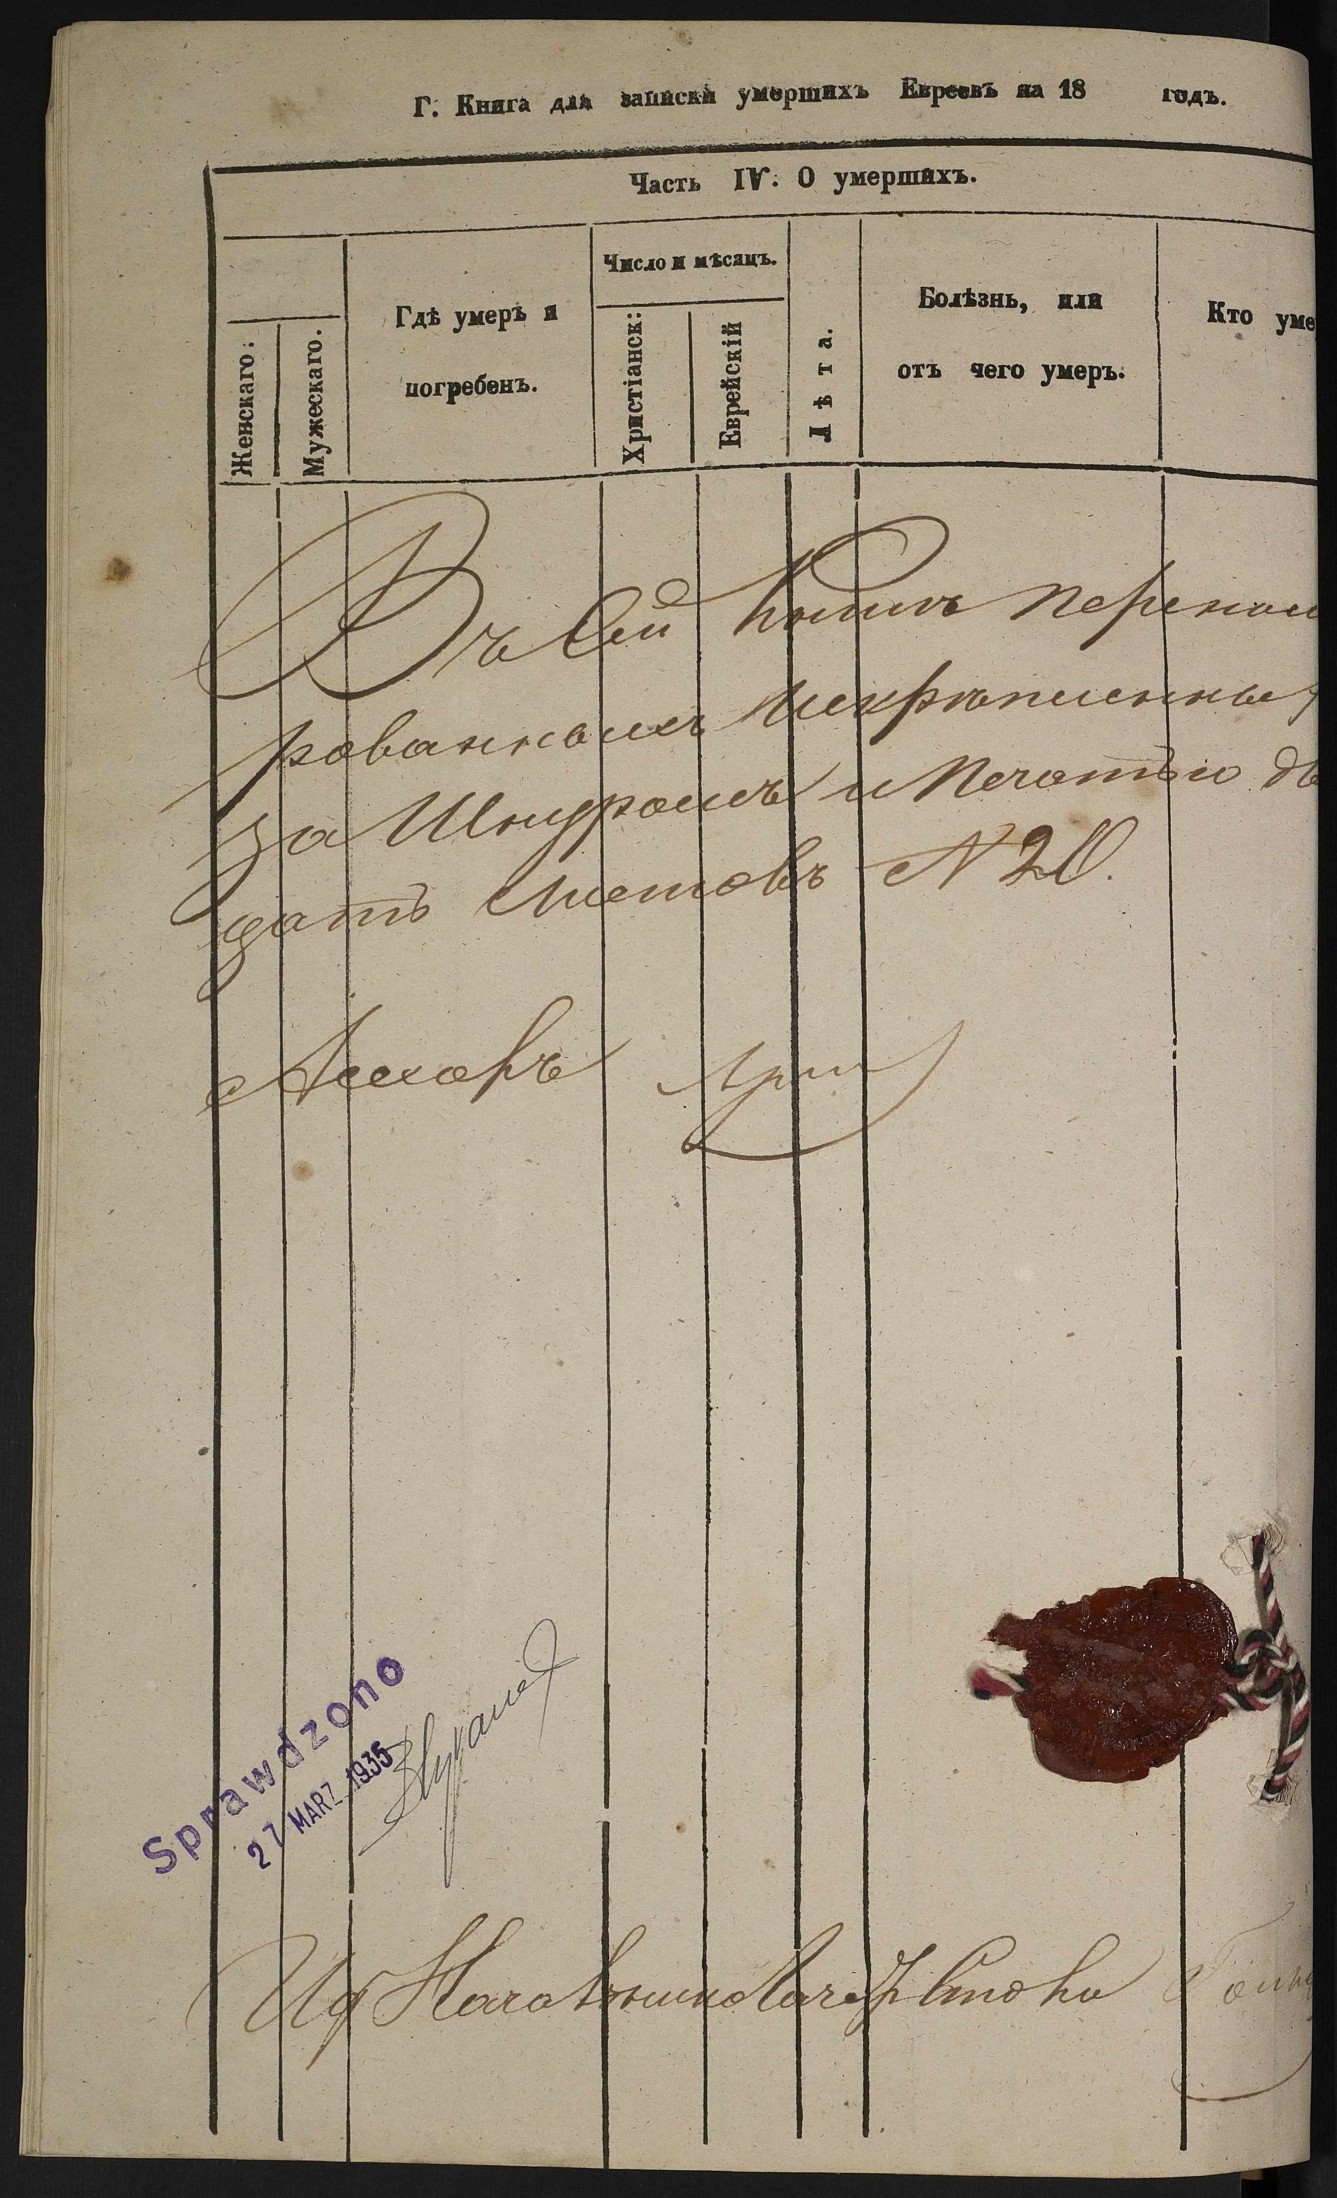 Г. Книга для записки умершихъ Евреевъ на 18 годъ.
Часть IV. О умершихъ.
Женскаго:
Мужескаго.
Гдѣ умеръ и
погребенъ.
Число и мѣсяцъ.
Христіанск:
Еврейскій
Лѣта.
Болѣзнь, или
отъ чего умеръ.
Кто уме
Въ Сей Книгѣ перенуме
рованныхъ
за Шнуромъ и Печатью дв
цать Листовъ N 20.
Sprawdzono
27 MARZ. 1935
Стола